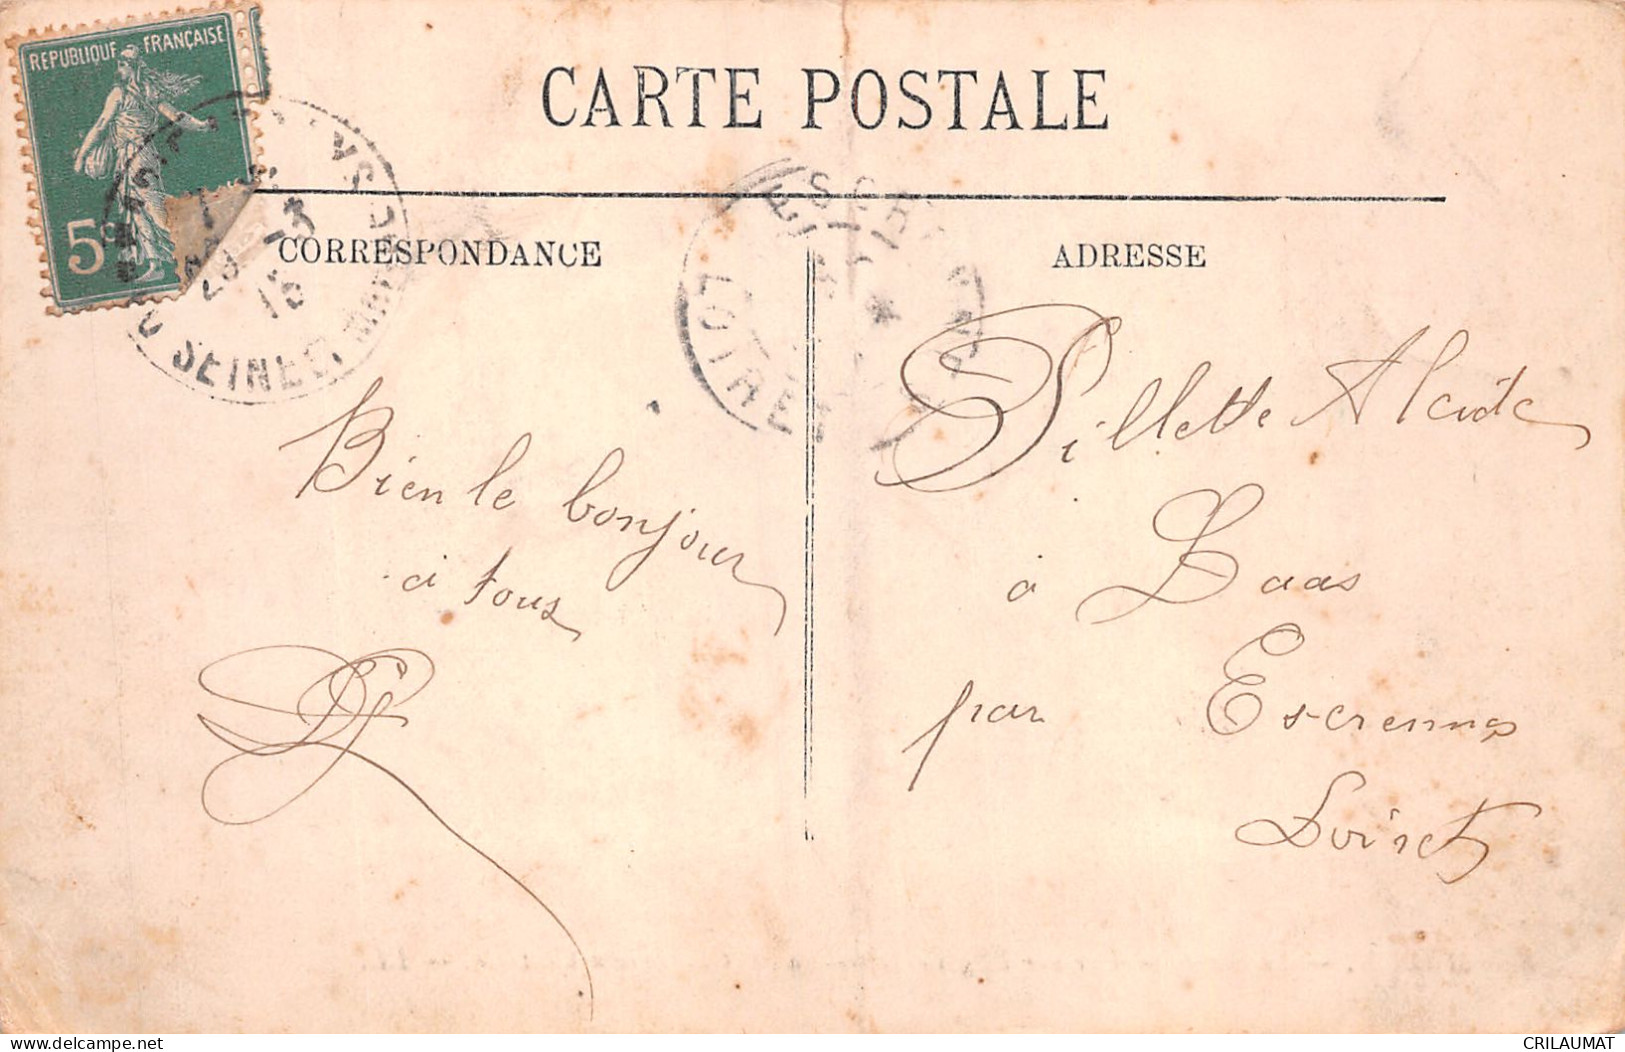 REPUBLIQUE FRANÇAISE
5c
CARTE POSTALE
CORRESPONDANCE
ADRESSE
LOIRET
Bien le bonjour
à tous
Pillette Alcide
à Laas
par Escrennes
Loiret
www.delcampe.net
CRILAUMAT